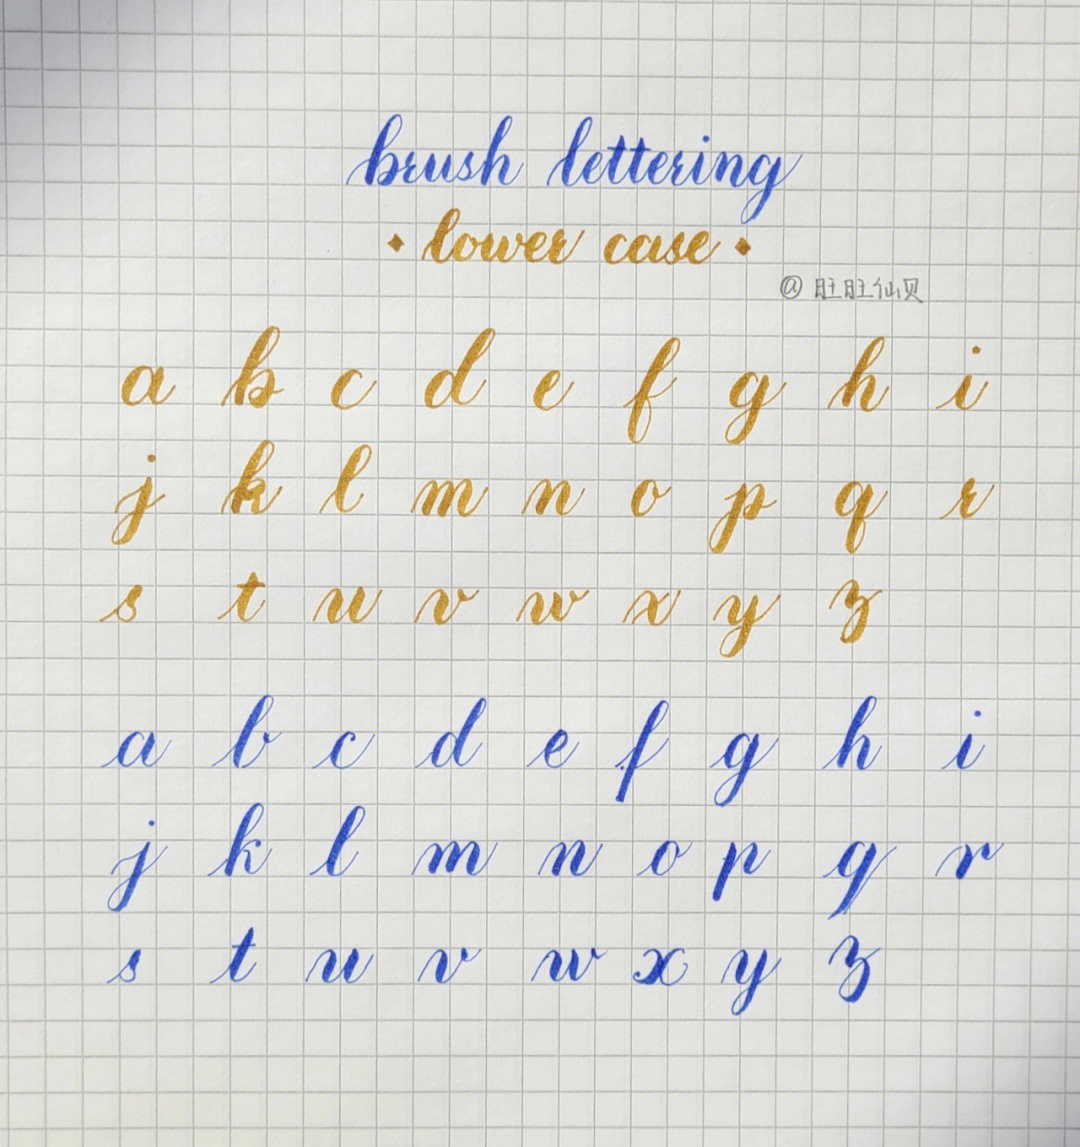 brush lettering
• lower case •
@旺旺仙贝
a b c d e f g h i
j k l m n o p q r
s t u v w x y z
a b c d e f g h i
j k l m n o p q r
s t u v w x y z